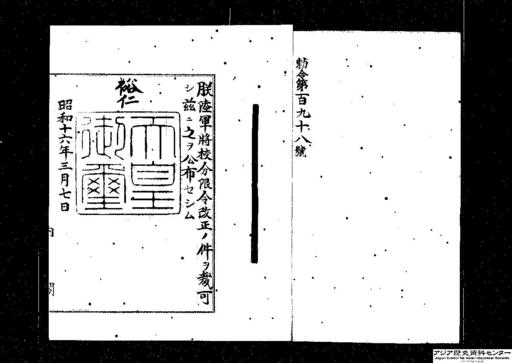 勅令第百九十八號
朕陸軍將校分限令改正ノ件ヲ裁可
シ茲ニ之ヲ公布セシム
裕仁
天皇
御璽
昭和十六年三月七日
内閣
アジア歴史資料センター
Japan Center for Asian Historical Records